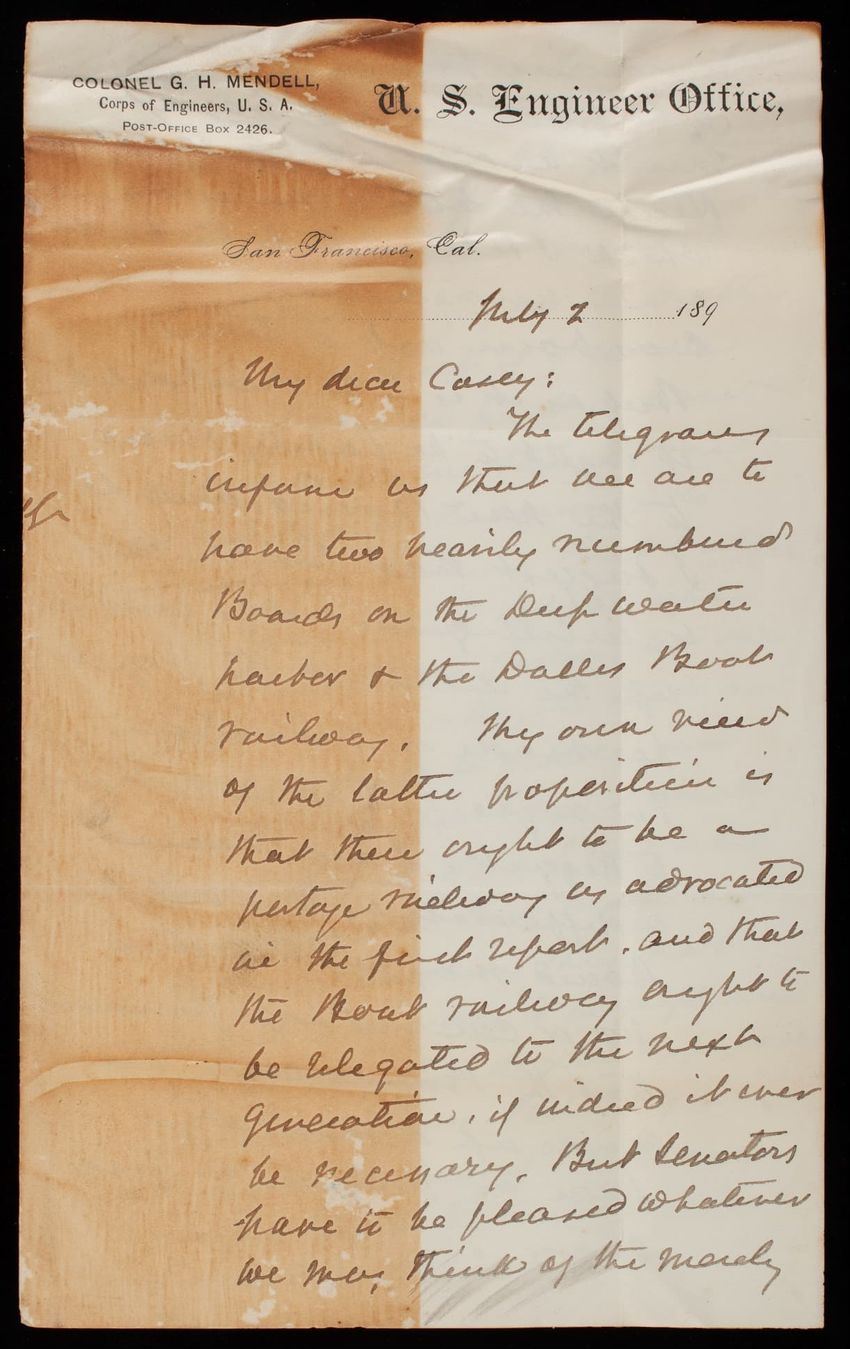 COLONEL G. H. MENDELL,
Corps of Engineers, U. S. A.
POST-OFFICE BOX 2426.
U. S. Engineer Office,
San Francisco, Cal.
July 2 189
My dear Casey:
The telegrams
inform us that we are to
have two heavily numbered
Boards on the Deep water
harbor & the Dalles Boat
railway. My own view
of the latter proposition is
that there ought to be a
portage railway as advocated
in the first report, and that
the Boat railway ought to
be relegated to the next
generation, if indeed it ever
be necessary. But Senators
have to be pleased whatever
we may think of the